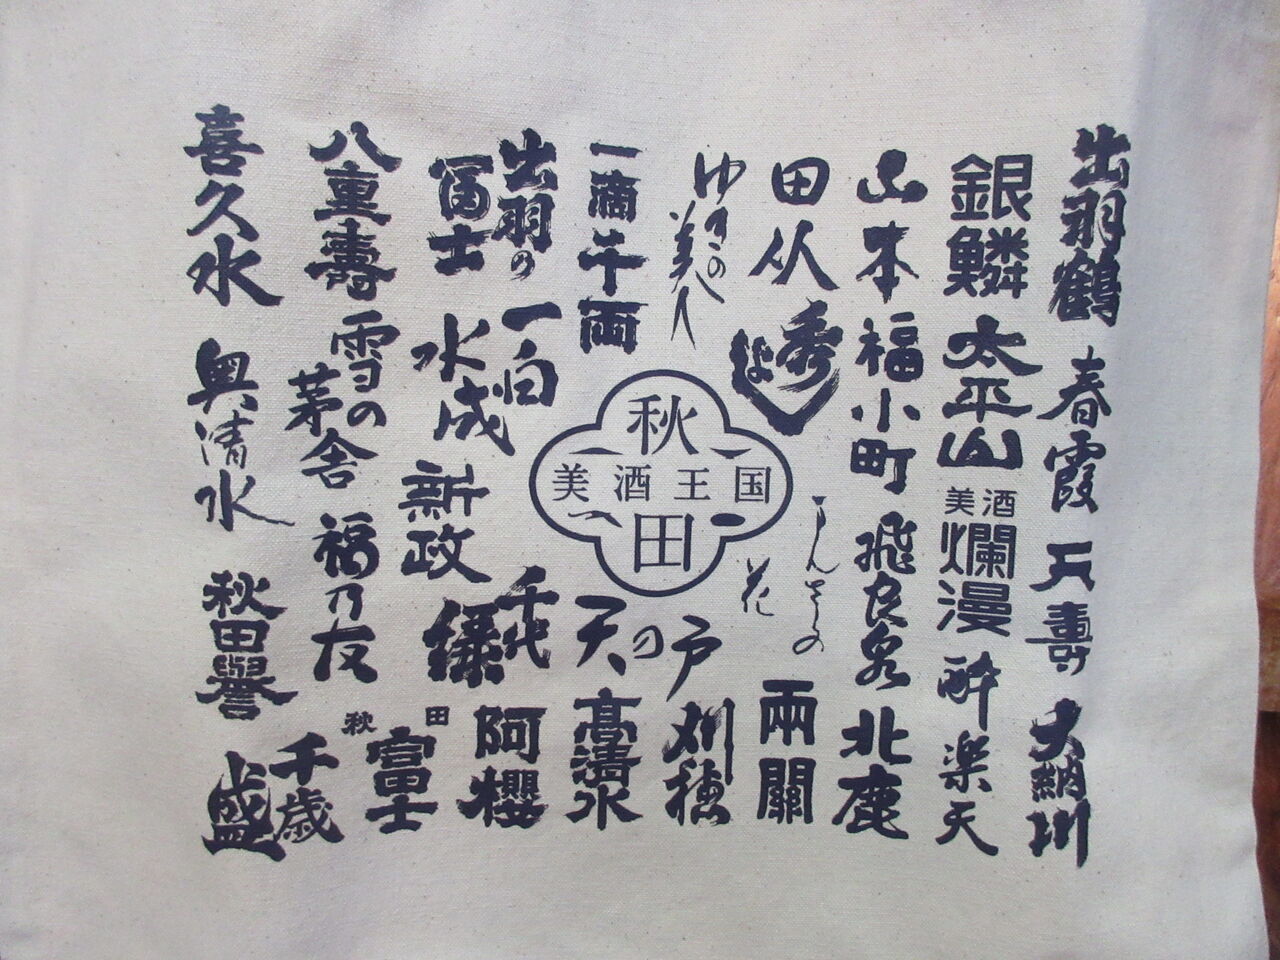 出羽鶴
春霞
天寿
大納川
銀鱗
太平山
美酒
爛漫
酔楽天
山本
福小町
飛良泉
北鹿
田从
秀よし
まんさくの
花
兩關
ゆきの
美人
刈穂
一滴千両
秋田
美酒王国
天の戸
高清水
出羽の
冨士
一白
水成
新政
千代
緑
阿櫻
八重壽
雪の
茅舎
福乃友
秋田
富士
喜久水
奥清水
秋田譽
千歳
盛